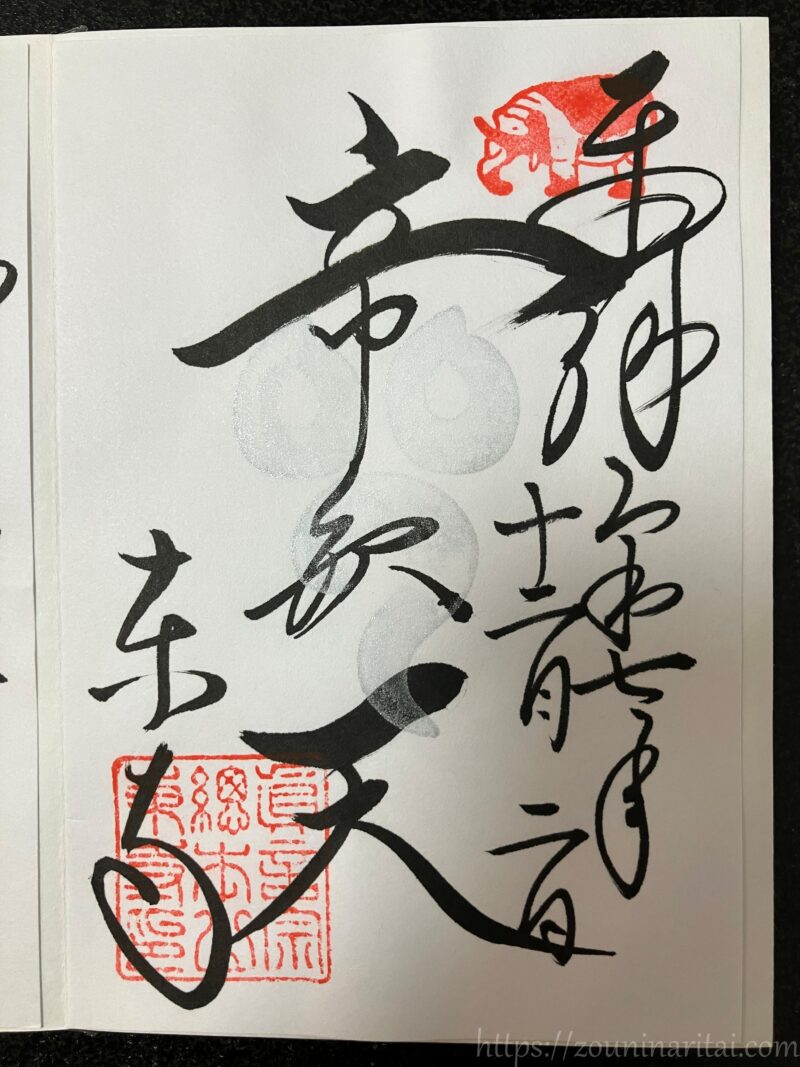 奉拝
令和七年
十二月二日
帝釈天
東寺
眞言宗
總本山
東寺印
https://zouninaritai.com